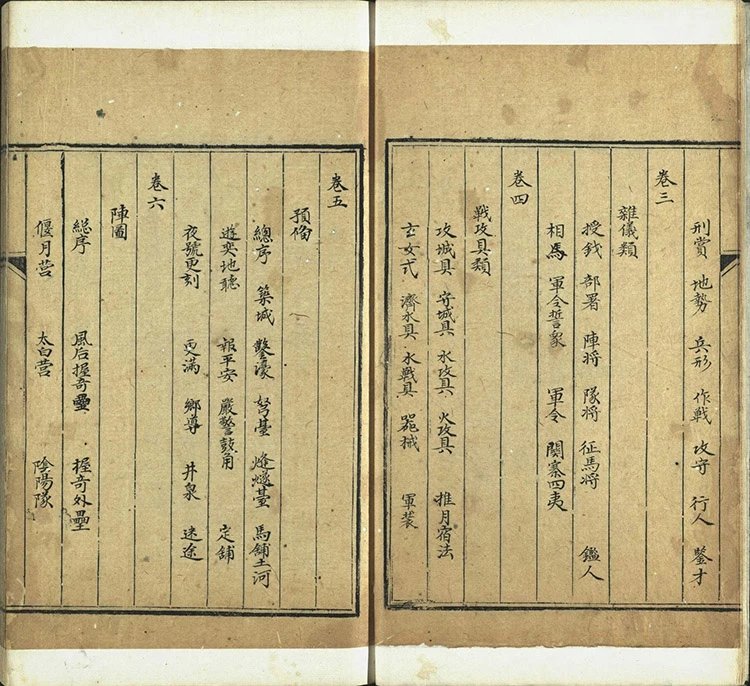 刑賞 地勢 兵形 作戰 攻守 行人 鑒才
卷三
雜儀類
授鉞 部署 陣將 隊將 征馬將 鑑人
相馬 軍令誓衆 軍令 関寨四夷
卷四
戰攻具類
攻城具 守城具 水攻具 火攻具 推月宿法
玄女式 濟水具 水戰具 器械 軍裝
卷五
預俻
總序 築城 鑿濠 弩臺 烽燧臺 馬舖土河
遊奕地聽 報平安 嚴警鼓角 定舖
夜號更刻 更滿 鄉導 井泉 迷途
卷六
陣圖
総序 風后握奇壘 握奇外壘
偃月营 太白营 陰陽隊